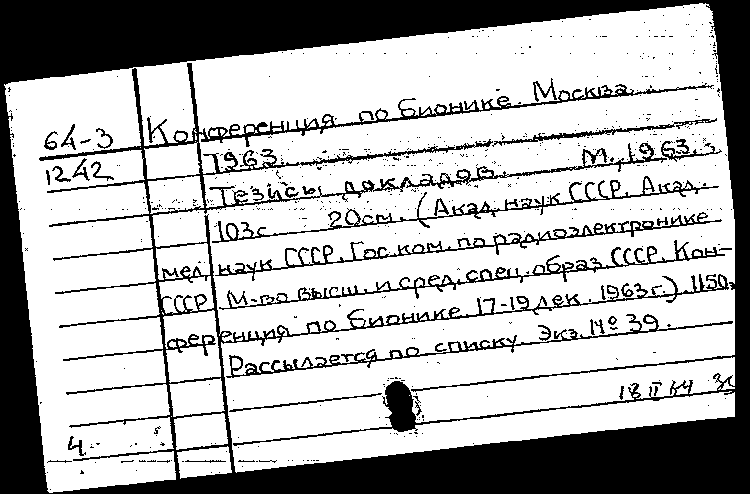 64-3 Конференция по бионике. Москва.
1242 1963.
Тезисы докладов. М., 1963.
103с. 20см. (Акад. наук СССР. Акад.
мед. наук СССР. Гос. ком. по радиоэлектронике
СССР М-во высш. и сред. спец. образ. СССР. Кон-
ференция по бионике. 17-19 дек. 1963г.). 1150э
Рассылается по списку. Экз. № 39.
18 II 64
4